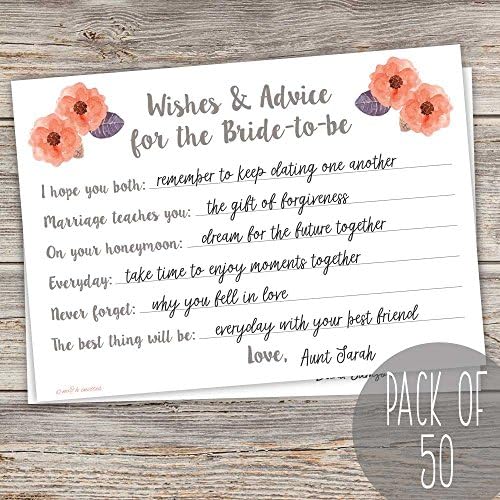 Wishes & Advice
for the Bride-to-be
I hope you both: remember to keep dating one another
Marriage teaches you: the gift of forgiveness
On your honeymoon: dream for the future together
Everyday: take time to enjoy moments together
Never forget: why you fell in love
The best thing will be: everyday with your best friend
Love, Aunt Sarah
PACK OF
50